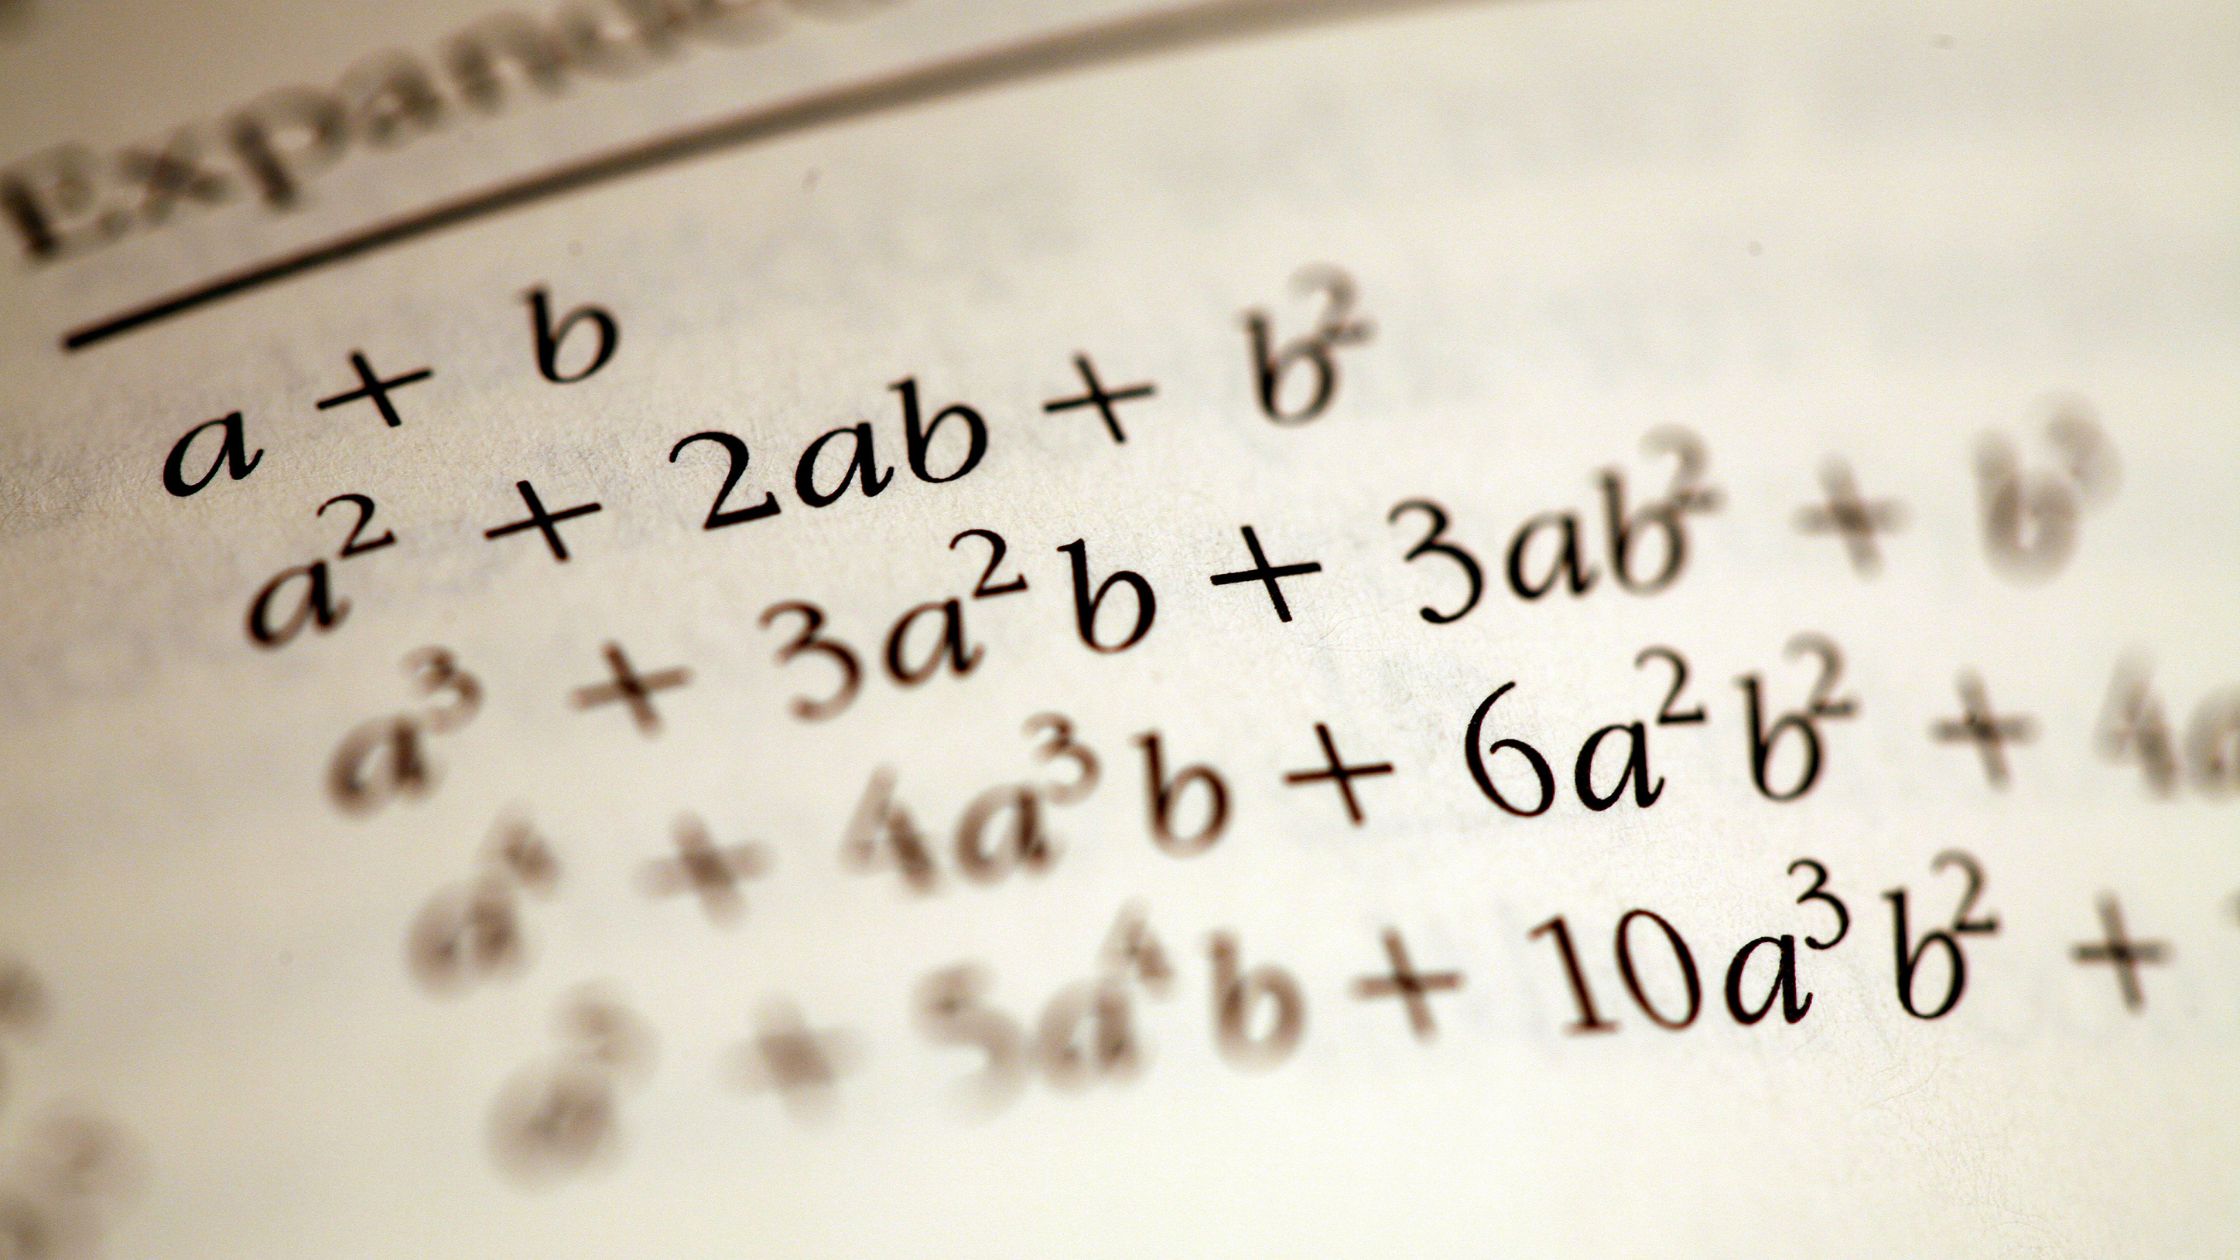 a + b
a² + 2ab + b²
a³ + 3a²b + 3ab² + b³
a⁴ + 4a³b + 6a²b² + 4a
a⁵ + 5a⁴b + 10a³b² +